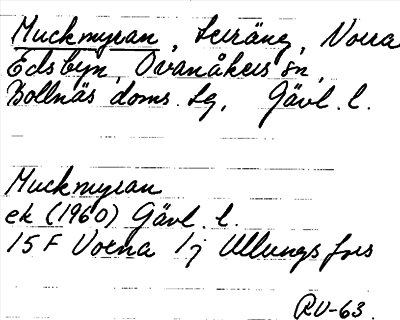 Muckmyran, Voxna
Edsbyn, Ovanåkers sn,
Bollnäs doms. sg, Gävl. l.
Muckmyran
ek (1960) Gävl. l.
15 F Voxna 1j Ullungsfors
RV-63.